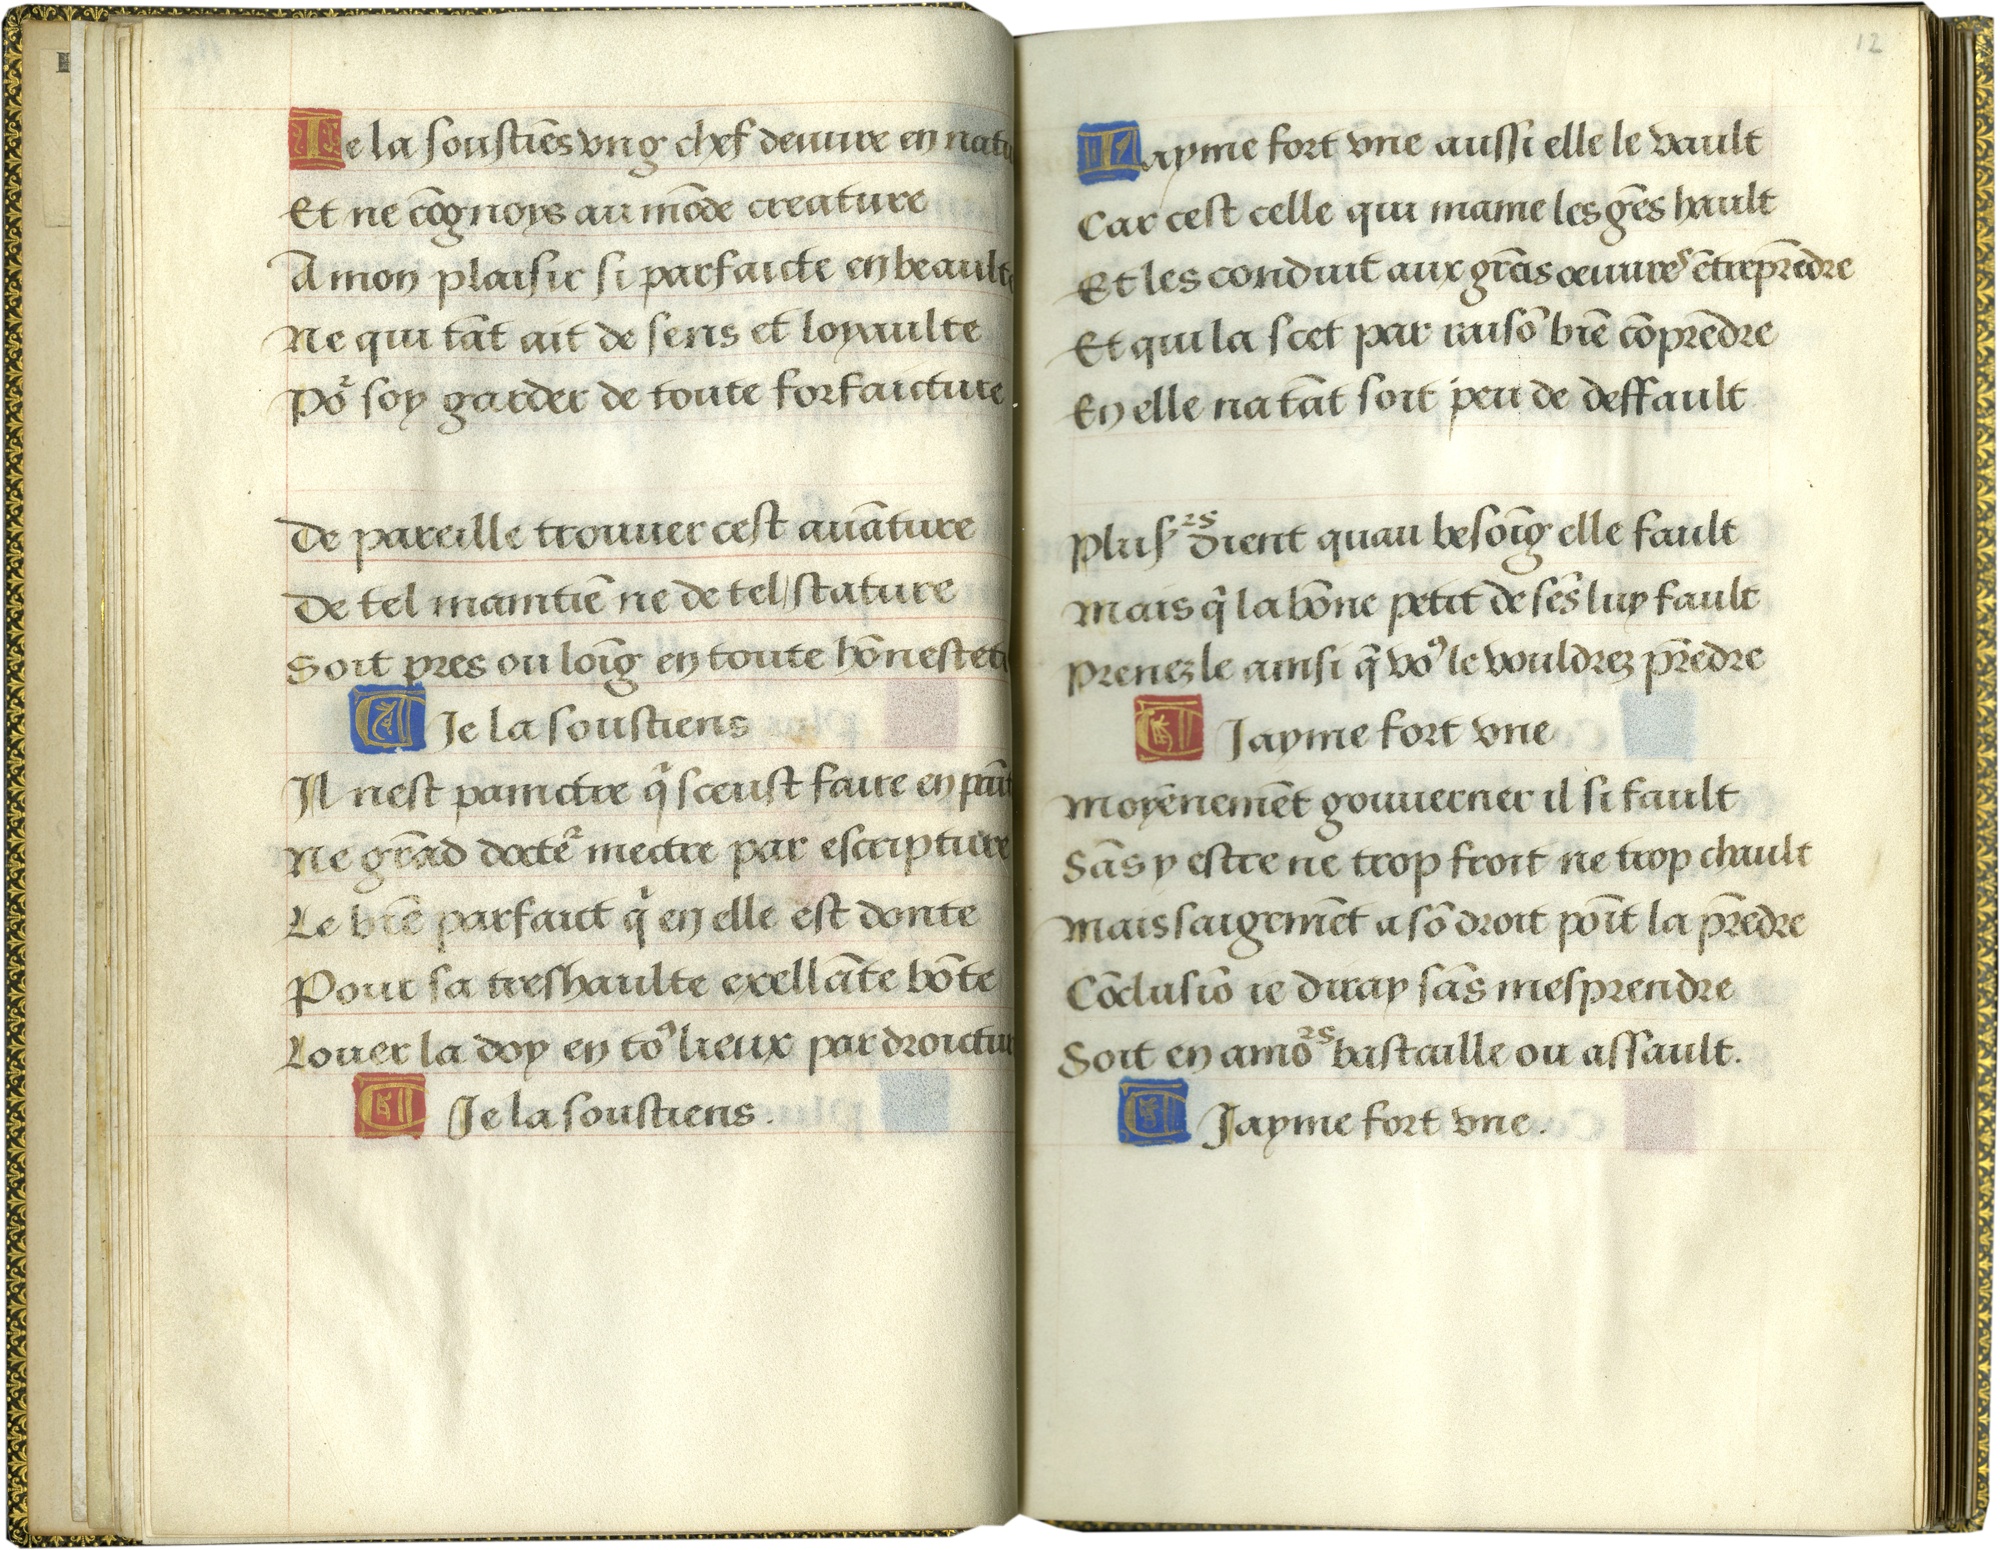 Je la soustiēs vng chef deuure en natu
Et ne cōgnoys au mōde creature
A mon plaisir si parfaicte en beaulte
Ne qui tāt ait de sens et loyaulte
Po᷑ soy garder de toute forfaicture
De pareille trouuer cest auāture
De tel maintiē ne de tel stature
Soit pres ou loīg en toute hōnestete
Je la soustiens
Il nest painctre q̄ sceust faire en paīt
Ne grād docte᷑ mectre par escripture
Le biē parfaict q̄ en elle est donte
Pour sa treshaulte exellāte bōte
Louer la doy en toꝰ lieux par droictur
Je la soustiens.
12
Jayme fort vne aussi elle le vault
Car cest celle qui maine les gēs hault
Et les conduit aux grās oeuures ētreprēdre
Et qui la scet par raisō biē cōprēdre
En elle na tāt soit peu de deffault
Plusʳˢ dient quau besoīg elle fault
Mais q̄ la bōne petit de sēs luy fault
Prenez le ainsi q̄ voꝰ le vouldrez prēdre
Jayme fort vne
Moyēnemēt gouuerner il si fault
Sās y estre ne trop froit ne trop chault
Mais saigemēt a sō droit poīt la prēdre
Cōclusiō ie diray sās mesprendre
Soit en amoʳˢ bastaille ou assault.
Jayme fort vne.